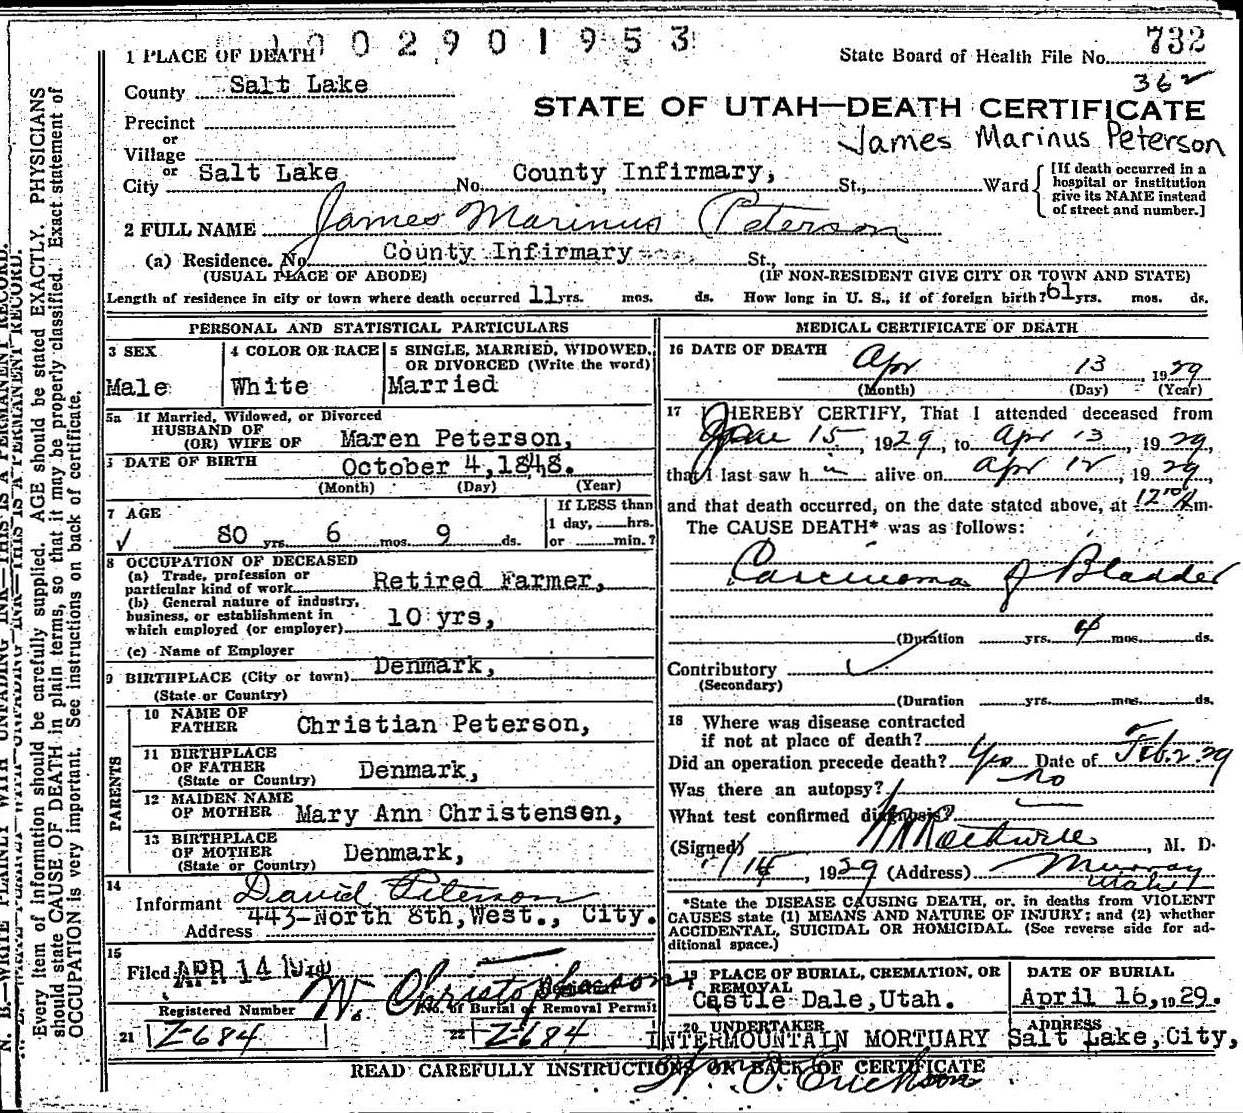 1002901953
1 PLACE OF DEATH
State Board of Health File No. 732
County Salt Lake
362
STATE OF UTAH—DEATH CERTIFICATE
Precinct
or
James Marinus Peterson
Village
or
City Salt Lake No. County Infirmary, St., Ward
[If death occurred in a
hospital or institution
give its NAME instead
of street and number.]
2 FULL NAME James Marinus Peterson
(a) Residence. No. County Infirmary St.,
(USUAL PLACE OF ABODE) (IF NON-RESIDENT GIVE CITY OR TOWN AND STATE)
Length of residence in city or town where death occurred 11 yrs. mos. ds. How long in U. S., if of foreign birth? 61 yrs. mos. ds.
PERSONAL AND STATISTICAL PARTICULARS
3 SEX
Male
4 COLOR OR RACE
White
5 SINGLE, MARRIED, WIDOWED,
OR DIVORCED (Write the word)
Married
5a If Married, Widowed, or Divorced
HUSBAND OF
(OR) WIFE OF Maren Peterson,
DATE OF BIRTH October 4, 1848.
(Month) (Day) (Year)
7 AGE
80 yrs. 6 mos. 9 ds.
If LESS than
1 day, hrs.
or min.?
8 OCCUPATION OF DECEASED
(a) Trade, profession or
particular kind of work Retired Farmer,
(b) General nature of industry,
business, or establishment in
which employed (or employer) 10 yrs,
(c) Name of Employer
9 BIRTHPLACE (City or town) Denmark,
(State or Country)
PARENTS
10 NAME OF
FATHER Christian Peterson,
11 BIRTHPLACE
OF FATHER Denmark,
(State or Country)
12 MAIDEN NAME
OF MOTHER Mary Ann Christensen,
13 BIRTHPLACE
OF MOTHER Denmark,
(State or Country)
14
Informant David Peterson
Address 443-North 8th, West., City.
15
Filed APR 14 19
W. Christopherson
Registrar
Registered Number No. of Burial or Removal Permit
21 Z-684 22 Z-684
MEDICAL CERTIFICATE OF DEATH
16 DATE OF DEATH
Apr 13, 1929
(Month) (Day) (Year)
17 I HEREBY CERTIFY, That I attended deceased from
15, 1929, to Apr 13, 1929,
that I last saw h im alive on Apr 12 1929,
and that death occurred, on the date stated above, at 12 A m.
The CAUSE DEATH* was as follows:
Carcinoma of Bladder
(Duration yrs. 4 mos. ds.
Contributory
(Secondary)
(Duration yrs. mos. ds.
18 Where was disease contracted
if not at place of death?
Did an operation precede death? Yes Date of Feb. 2. 29
Was there an autopsy? no
What test confirmed diagnosis?
(Signed) , M. D.
14, 1929 (Address) Murray
Utah
*State the DISEASE CAUSING DEATH, or, in deaths from VIOLENT
CAUSES state (1) MEANS AND NATURE OF INJURY; and (2) whether
ACCIDENTAL, SUICIDAL OR HOMICIDAL. (See reverse side for ad-
ditional space.)
19 PLACE OF BURIAL, CREMATION, OR
REMOVAL
Castle Dale, Utah.
DATE OF BURIAL
April 16, 1929.
20 UNDERTAKER
INTERMOUNTAIN MORTUARY
ADDRESS
Salt Lake, City,
READ CAREFULLY INSTRUCTIONS ON BACK OF CERTIFICATE
N. B.—WRITE PLAINLY WITH UNFADING INK—THIS IS A PERMANENT RECORD.
Every item of information should be carefully supplied. AGE should be stated EXACTLY. PHYSICIANS
should state CAUSE OF DEATH in plain terms, so that it may be properly classified. Exact statement of
OCCUPATION is very important. See instructions on back of certificate.